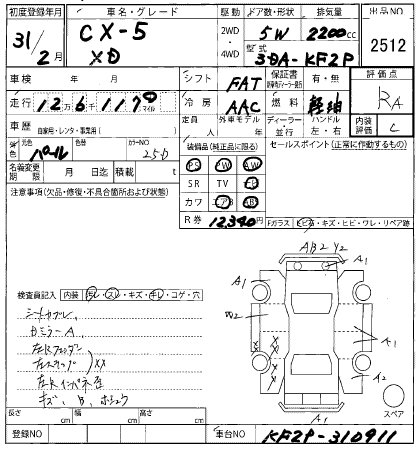 初度登録年月 車名・グレード 駆動 ドア数・形状 排気量 出品NO
31/2月 CX-5 XD 2WD・4WD 5W 2200cc 2512
型式 3DA-KF2P
車検 年 月 シフト FAT 保証書 有・無 評価点 RA
走行 12万6千117 マイル 冷房 AAC 燃料 軽油
車歴 自家用・レンタ・事業用( ) 定員 人 外車モデル 年 ディーラー・並行 ハンドル 左・右 内装評価 C
元色 パール 色替 カラーNO 25D 装備品(純正品に限る) セールスポイント(正常に作動するもの)
名義変更期限 月 日迄 積載 t PS PW AW
注意事項(欠品・修復・不具合箇所および状態) SR TV
カワ エアB
R券 12,340円 Fガラス ヒビA・キズ・ヒビ・ワレ・リペア跡
AB2 Y2
A1
A1
検査員記入 内装 汚レ・スレ・キズ・キレ・コゲ・穴
B2
シートカブレ、
BミラーA
左Rフェンダー
XX
A1
A2
左Rインパネ
キズ、B、
スペア
A1
長さ cm 幅 cm 高さ cm
登録NO 車台NO KF2P-310911